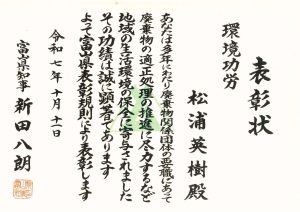 表彰状
環境功労
松浦英樹殿
あなたは多年にわたり廃棄物関係団体の要職にあって
廃棄物の適正処理の推進に尽力するなど
地域の生活環境の保全に寄与されました
その功績は誠に顕著であります
よって富山県表彰規則により表彰します
令和七年十月十一日
富山県知事 新田八朗